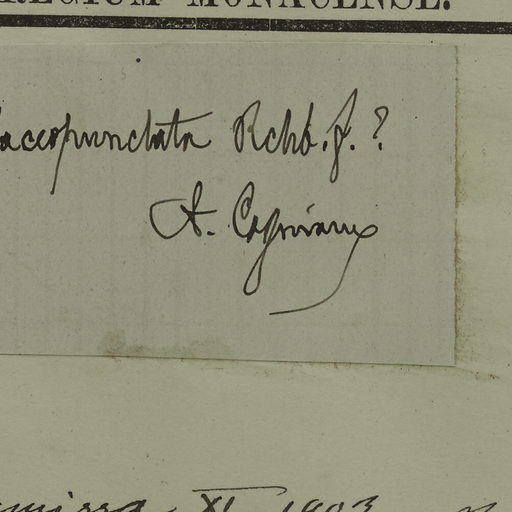 REGIUM MONACENSE.
laccopunctata Rchb. f. ?
A. Cogniaux
XI. 1903